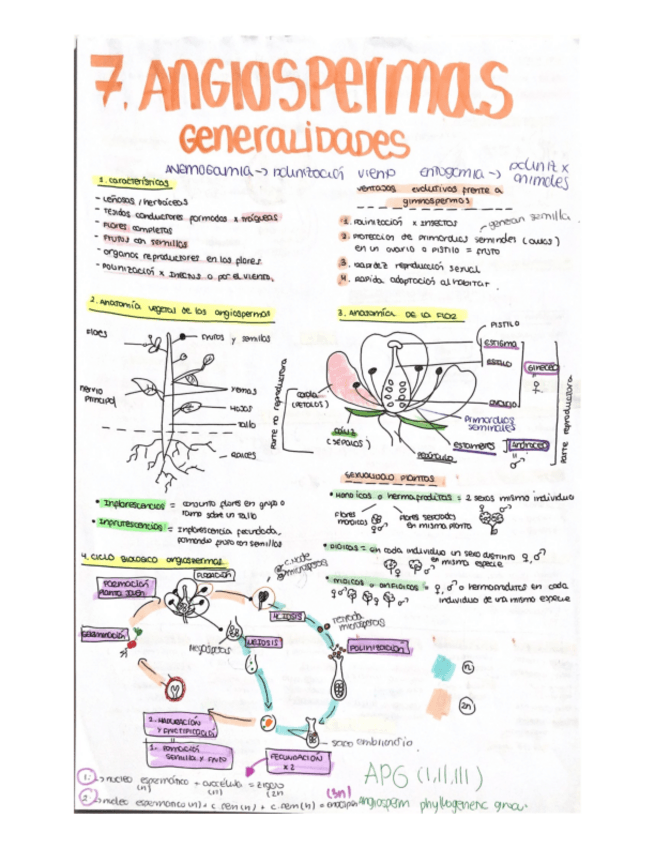 7. ANGIOSPERMAS
GENERALIDADES
ANEMOGAMIA → POLINIZACIÓN VIENTO ENTOGAMIA → POLINIZ X
ANIMALES
1. CARACTERÍSTICAS
- LEÑOSAS / HERBÁCEAS
- TEJIDOS CONDUCTORES FORMADOS X TRÁQUEAS
- FLORES COMPLETAS
- FRUTOS CON SEMILLAS
- ORGANOS REPRODUCTORES EN LAS FLORES
- POLINIZACIÓN X INSECTOS O POR EL VIENTO.
VENTAJAS EVOLUTIVAS FRENTE A
GIMNOSPERMAS
1. POLINIZACIÓN X INSECTOS
generan semilla
2. PROTECCION DE PRIMORDIOS SEMINALES
EN UN OVARIO O PISTILO = FRUTO
3. RAPIDEZ REPRODUCCIÓN SEXUAL
4. RAPIDA ADAPTACIÓN AL HÁBITAT.
2. ANATOMÍA VEGETAL DE LAS ANGIOSPERMAS
FLORES
FRUTOS Y SEMILLAS
NERVIO
PRINCIPAL
YEMAS
HOJAS
TALLO
RAICES
3. ANATOMÍA DE LA FLOR
PISTILO
ESTIGMA
ESTILO
GINECEO
♀
OVARIO
COROLA
(PÉTALOS)
CÁLIZ
(SÉPALOS)
PRIMORDIOS
SEMINALES
ESTAMBRES
ANDROCEO
♂
PARTE NO REPRODUCTORA
PARTE REPRODUCTORA
• INFLORESCENCIAS = CONJUNTO FLORES EN GRUPO O
RAMO SOBRE UN TALLO
• INFRUTESCENCIAS = INFLORESCENCIA FECUNDADA,
FORMANDO FRUTO CON SEMILLAS
SEXUALIDAD PLANTAS
• MONOICAS O HERMAFRODITAS = 2 SEXOS MISMO INDIVIDUO
FLORES
MONOICAS
FLORES SEPARADAS
EN MISMA PLANTA
• DIOICAS = EN CADA INDIVIDUO UN SEXO DISTINTO ♀, ♂
EN MISMA ESPECIE
= ♀, ♂ O HERMAFRODITAS EN CADA
INDIVIDUO DE UNA MISMA ESPECIE
4. CICLO BIOLÓGICO ANGIOSPERMAS
FORMACIÓN
PLANTA JOVEN
FLORACIÓN
C. MADRE
MICROSPORAS
MEIOSIS
MICROSPORAS
GERMINACIÓN
MEIOSIS
POLINIZACIÓN
(n)
(2n)
2. MADURACIÓN
Y FRUCTIFICACIÓN
1. FORMACIÓN
SEMILLA Y FRUTO
FECUNDACIÓN
X2
SACO EMBRIONARIO
1. → NUCLEO ESPERMÁTICO + OVOCÉLULA = ZIGOTO
(n) (n) (2n)
APG (I,II,III)
(3n)
2. → NUCLEO ESPERMATICO (n) + C. FEM (n) + C. FEM (n) =
Angiosperm phyllogenetic group.